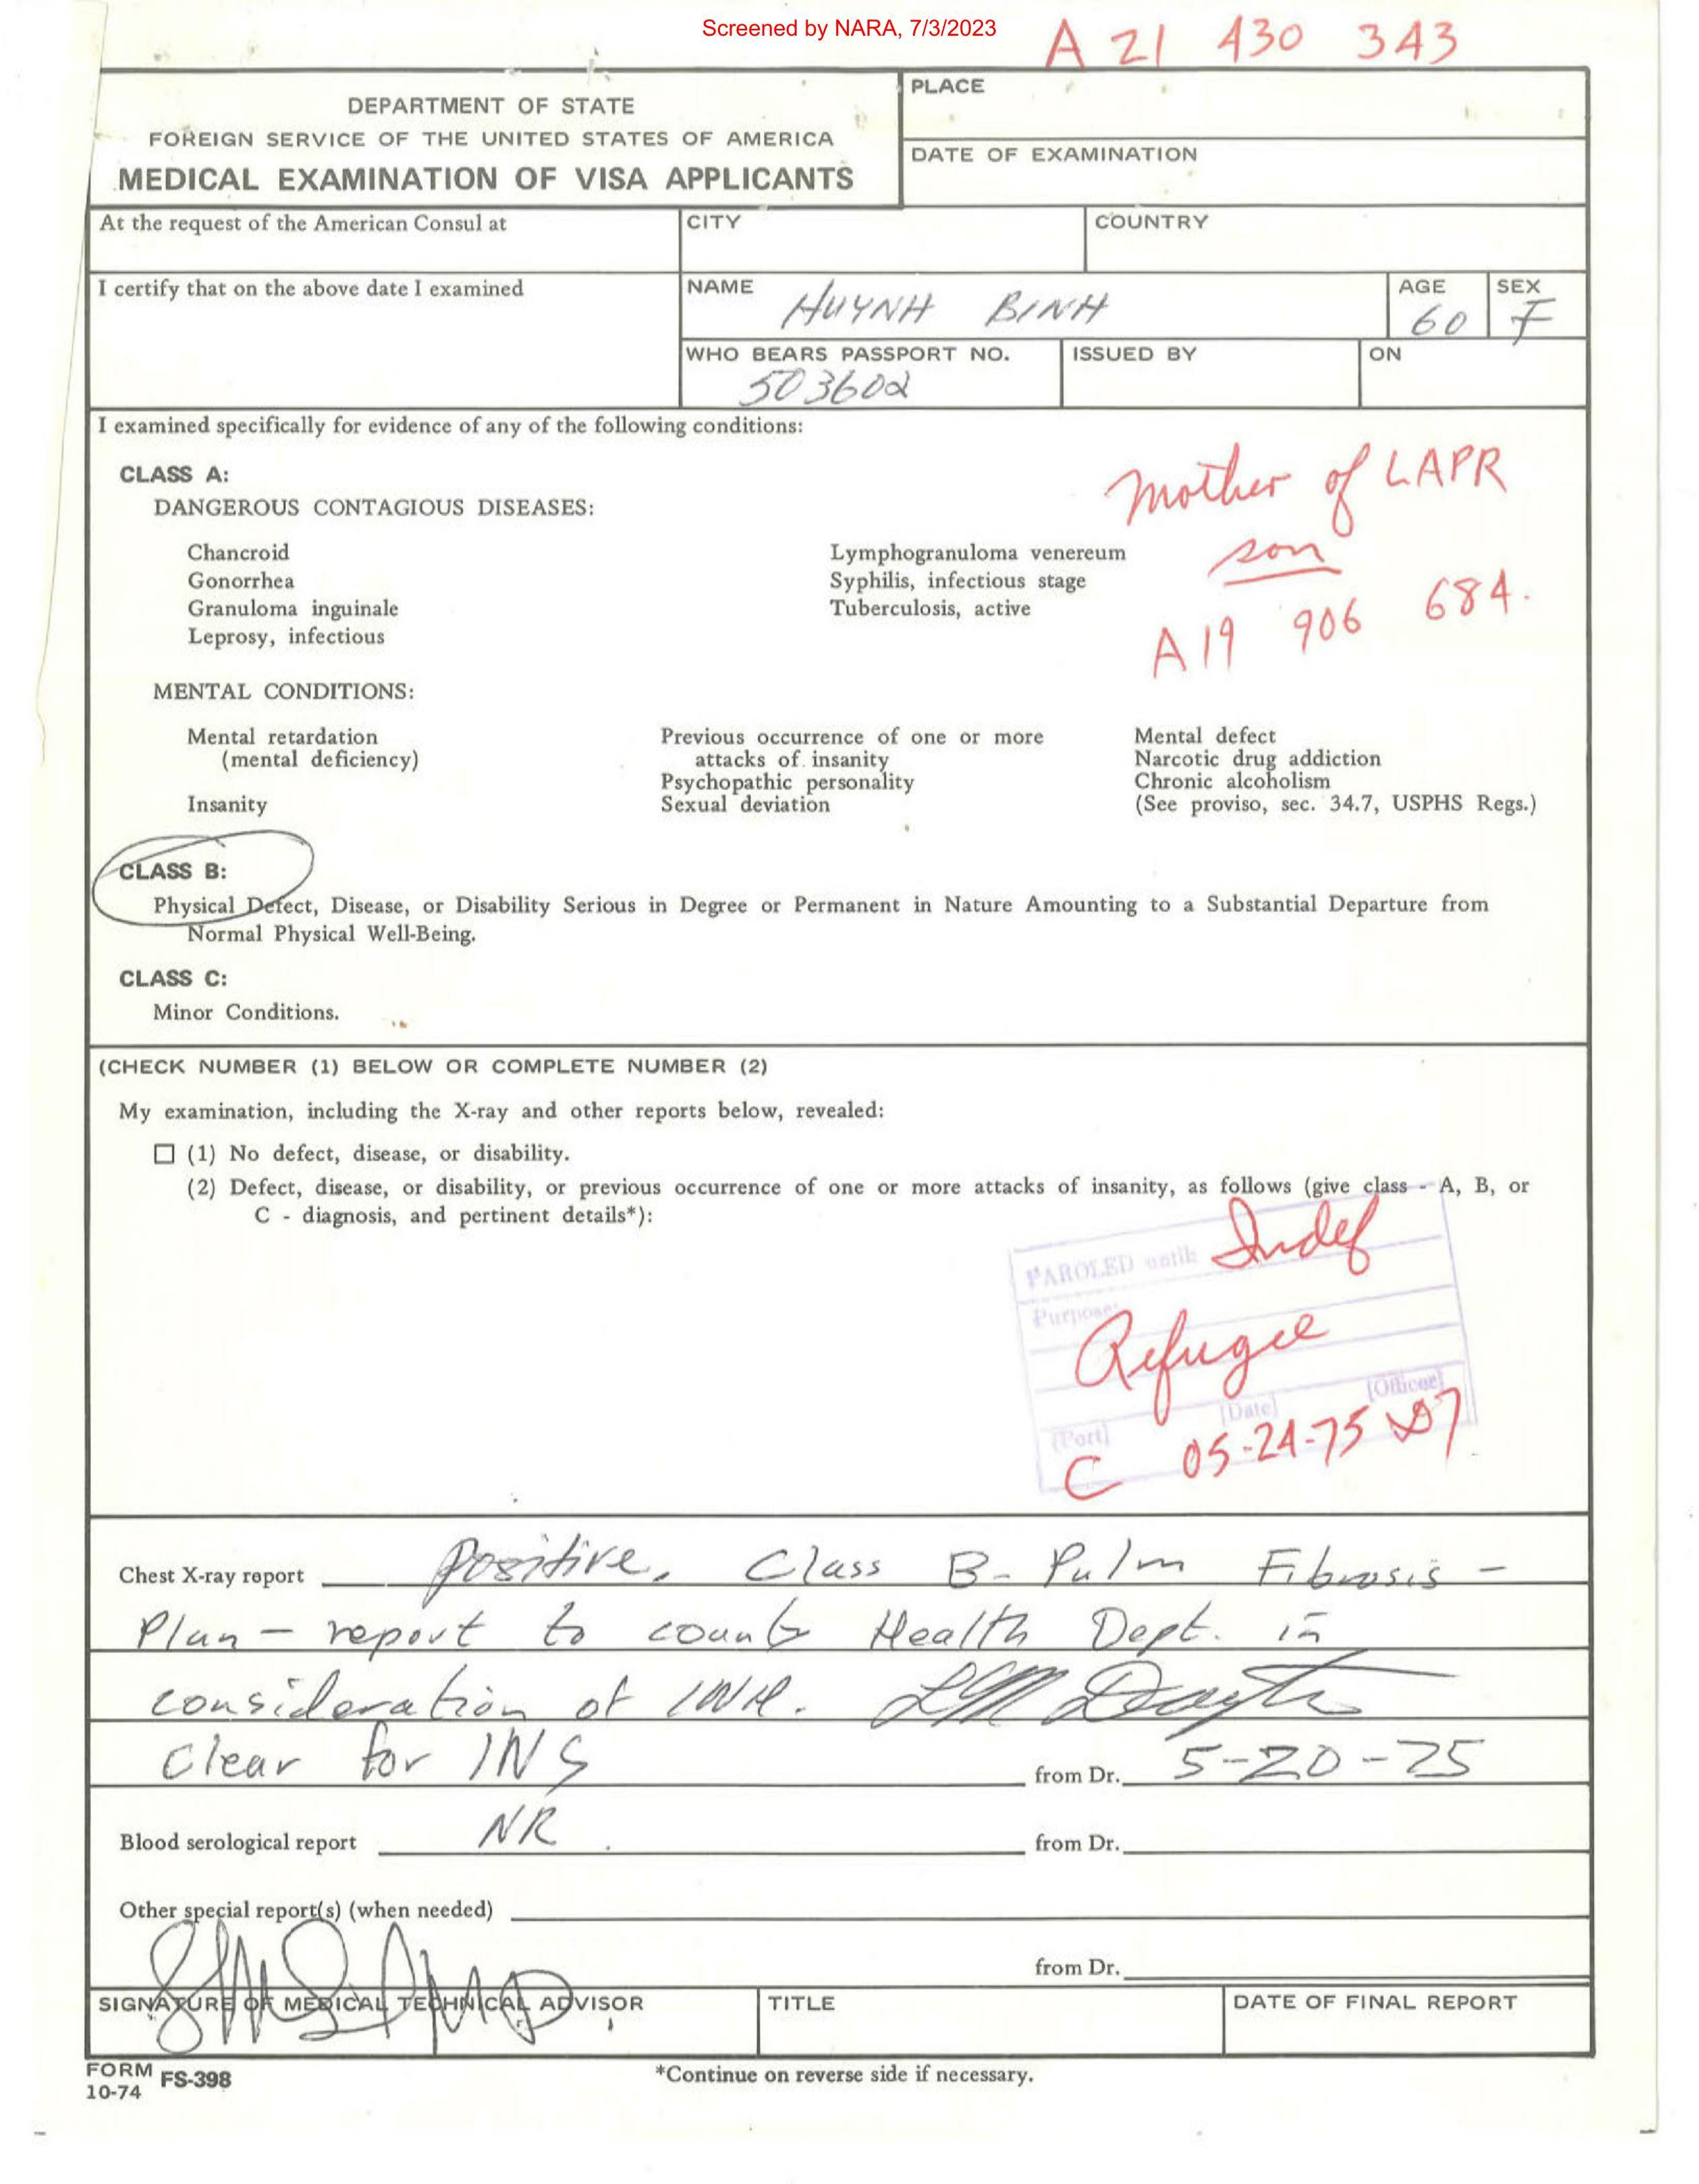 Screened by NARA, 7/3/2023
A 21 430 343
DEPARTMENT OF STATE
FOREIGN SERVICE OF THE UNITED STATES OF AMERICA
MEDICAL EXAMINATION OF VISA APPLICANTS
PLACE
DATE OF EXAMINATION
At the request of the American Consul at
CITY
COUNTRY
I certify that on the above date I examined
NAME HUYNH BINH
AGE 60
SEX F
WHO BEARS PASSPORT NO. 503602
ISSUED BY
ON
I examined specifically for evidence of any of the following conditions:
CLASS A:
DANGEROUS CONTAGIOUS DISEASES:
Chancroid
Gonorrhea
Granuloma inguinale
Leprosy, infectious
Lymphogranuloma venereum
Syphilis, infectious stage
Tuberculosis, active
Mother of LAPR
son
A19 906 684.
MENTAL CONDITIONS:
Mental retardation
(mental deficiency)
Insanity
Previous occurrence of one or more
attacks of insanity
Psychopathic personality
Sexual deviation
Mental defect
Narcotic drug addiction
Chronic alcoholism
(See proviso, sec. 34.7, USPHS Regs.)
CLASS B:
Physical Defect, Disease, or Disability Serious in Degree or Permanent in Nature Amounting to a Substantial Departure from
Normal Physical Well-Being.
CLASS C:
Minor Conditions.
(CHECK NUMBER (1) BELOW OR COMPLETE NUMBER (2)
My examination, including the X-ray and other reports below, revealed:
☐ (1) No defect, disease, or disability.
(2) Defect, disease, or disability, or previous occurrence of one or more attacks of insanity, as follows (give class - A, B, or
C - diagnosis, and pertinent details*):
PAROLED until: Indef
Purpose:
Refugee
[Port] [Date] [Officer]
C 05-24-75
Chest X-ray report Positive, Class B- Pulm Fibrosis -
Plan - report to county Health Dept. in
consideration of INH.
Clear for INS from Dr. 5-20-75
Blood serological report NR from Dr.
Other special report(s) (when needed)
from Dr.
SIGNATURE OF MEDICAL TECHNICAL ADVISOR
TITLE
DATE OF FINAL REPORT
FORM FS-398
10-74
*Continue on reverse side if necessary.